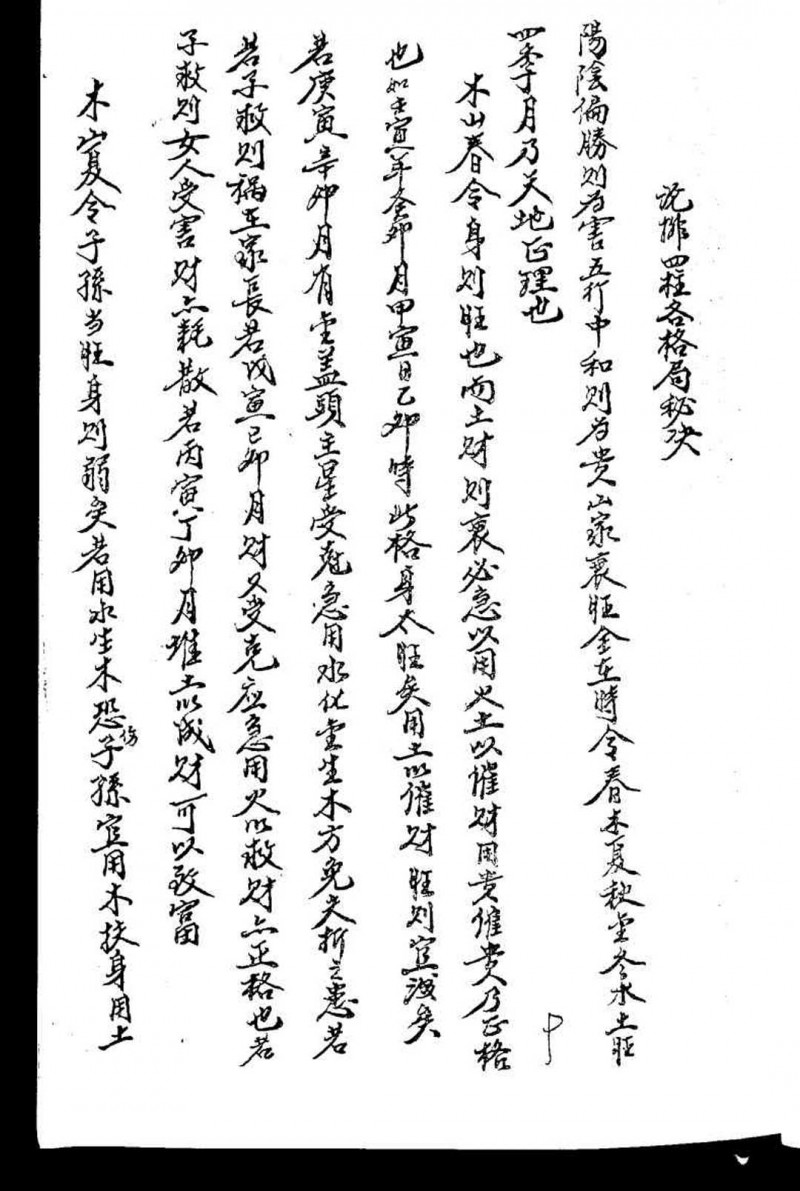 論排四柱各格局秘决
陽陰偏勝則為害五行中和則為貴山家衰旺全在時令春木夏秋金冬水土旺
四季月乃天地正理也
木山春令身則旺也而土財則衰必急以用火土以催財用貴催貴乃正格
也如壬寅年癸卯月甲寅日乙卯時此格身太旺矣用土以催財旺則宜洩矣
若庚寅辛卯月有金盖頭主星受尅急用水化金生木方免夭折之患若
若子救則禍在家長若戊寅己卯月財又受克应急用火以救財亦正格也若
子救則女人受害財亦耗散若丙寅丁卯月堆土以成財可以致富
木山夏令子孫当旺身則弱矣若用水生木恐伤子孫宜用木扶身用土